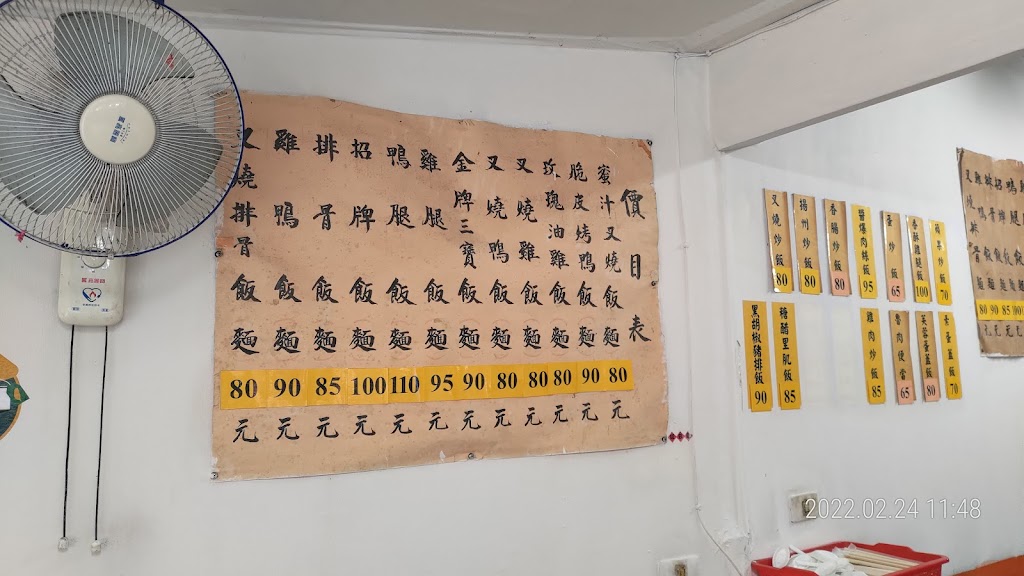 價目表
蜜汁叉燒飯麵80元
脆皮烤鴨飯麵90元
玫瑰油雞飯麵80元
叉燒雞飯麵80元
叉燒鴨飯麵80元
金牌三寶飯麵90元
雞腿飯麵95元
鴨腿飯麵110元
招牌飯麵100元
排骨飯麵85元
雞鴨飯麵90元
叉燒排骨飯麵80元
叉燒炒飯80
揚州炒飯80
香腸炒飯80
醬爆肉絲飯95
蛋炒飯65
香酥雞腿飯100
炒飯70
黑胡椒豬排飯90
糖醋里肌飯85
雞肉炒飯85
魯肉便當65
蛋蓋飯80
素蛋蓋飯70
80 90 85 100
元元元元
2022.02.24 11:48